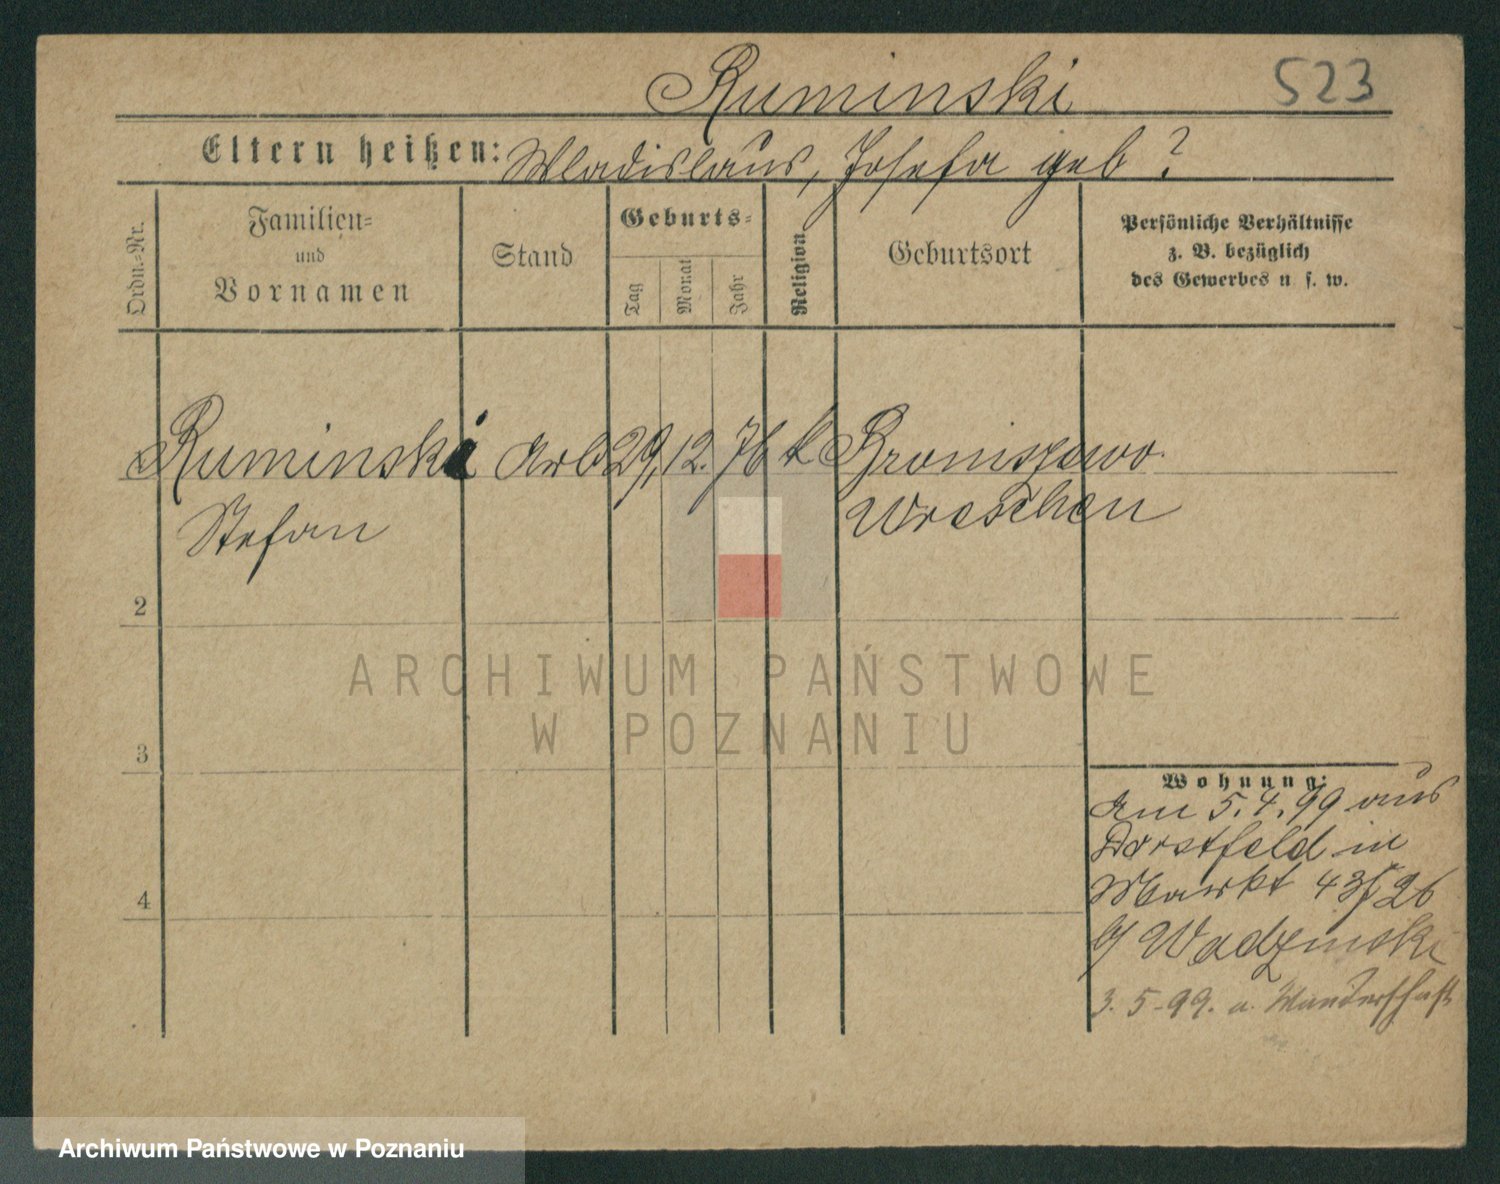 Ruminski 523
Eltern heißen: Wladislaus, Josefa geb ?
Ordn.-Nr.
Familien-
und
Vornamen
Stand
Geburts-
Tag
Monat
Jahr
Religion
Geburtsort
Persönliche Verhältnisse
z. B. bezüglich
des Gewerbes u s. w.
Ruminski Arb 29. 12. 76 k Broniszewo
Stefan Wreschen
2
3
4
Wohnung:
Am 5.4.99 aus
Dorstfeld in
Markt 43/26
b/ Wadzinski
3.5-99. a. Wanderschaft
ARCHIWUM PAŃSTWOWE
W POZNANIU
Archiwum Państwowe w Poznaniu